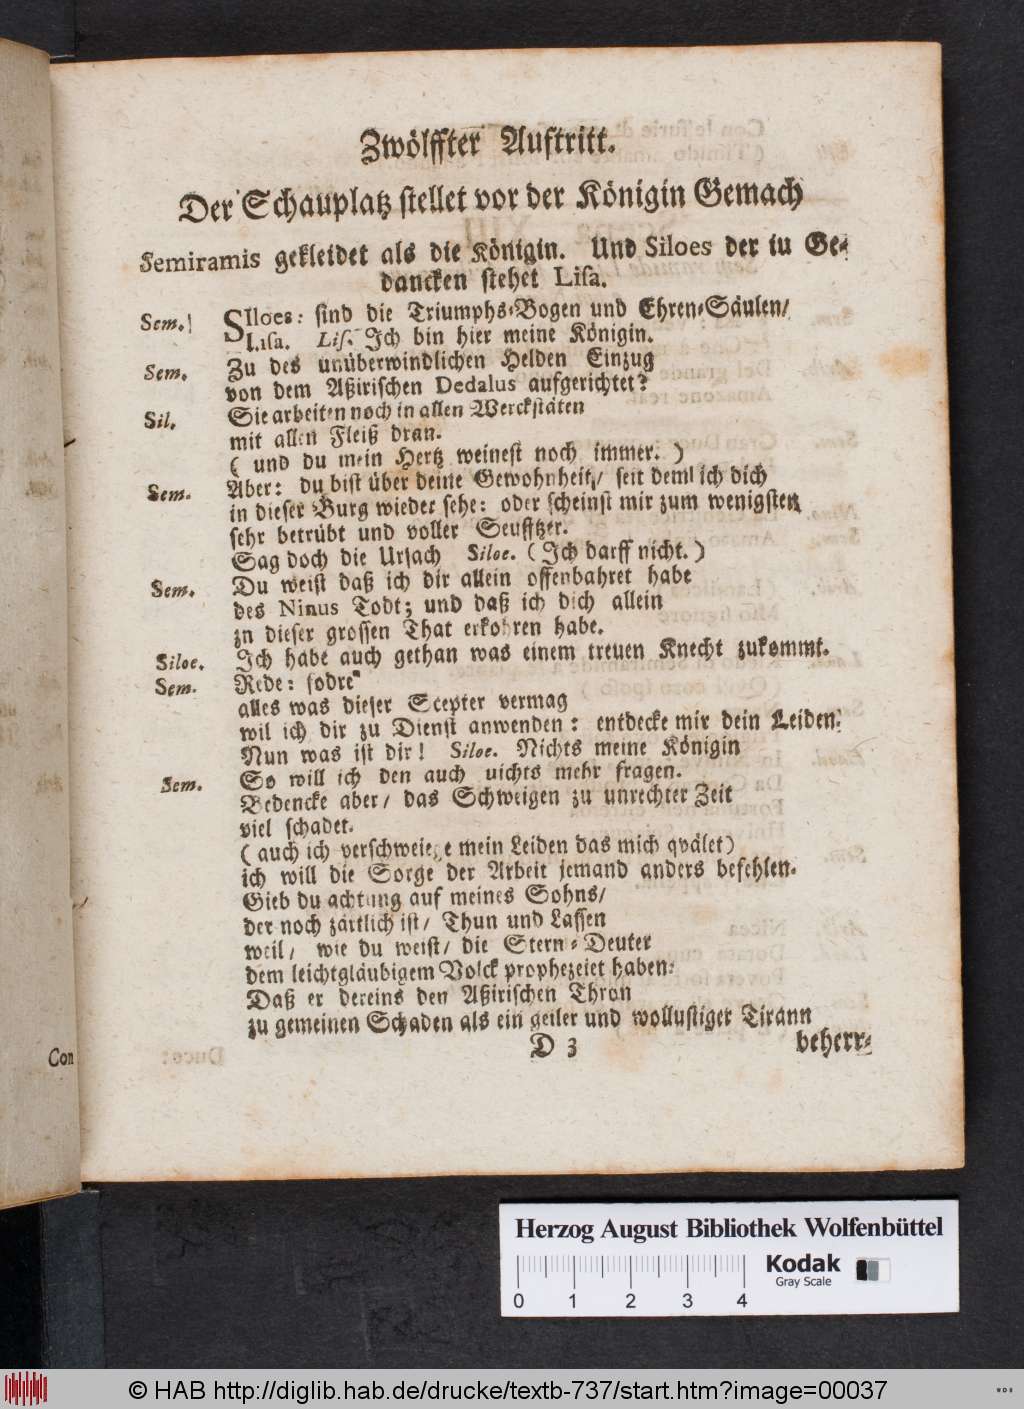 Zwölffter Auftritt.
Der Schauplatz stellet vor der Königin Gemach
Semiramis gekleidet als die Königin. Und Siloes der iu Ge-
dancken stehet Lisa.
Sem. SIloes: sind die Triumphs-Bogen und Ehren-Säulen/
Lisa. Lis. Ich bin hier meine Königin.
Sem. Zu des unüberwindlichen Helden Einzug
von dem Aßirischen Dedalus aufgerichtet?
Sil. Sie arbeiten noch in allen Werckstäten
mit allen Fleiß dran.
( und du mein Hertz weinest noch immer. )
Sem. Aber: du bist über deine Gewohnheit/ seit dem ich dich
in dieser Burg wieder sehe: oder scheinst mir zum wenigsten
sehr betrübt und voller Seufftzer.
Sag doch die Ursach Siloe. ( Ich darff nicht. )
Sem. Du weist daß ich dir allein offenbahret habe
des Ninus Todt; und daß ich dich allein
zn dieser grossen That erkohren habe.
Siloe. Ich habe auch gethan was einem treuen Knecht zukommt.
Sem. Rede: fodre
alles was dieser Scepter vermag
wil ich dir zu Dienst anwenden: entdecke mir dein Leiden.
Nun was ist dir! Siloe. Nichts meine Königin
Sem. So will ich den auch uichts mehr fragen.
Bedencke aber/ das Schweigen zu unrechter Zeit
viel schadet.
( auch ich verschweige mein Leiden das mich qvälet )
ich will die Sorge der Arbeit jemand anders befehlen.
Gieb du achtung auf meines Sohns/
der noch zärtlich ist/ Thun und Lassen
weil/ wie du weist/ die Stern-Deuter
dem leichtgläubigem Volck prophezeiet haben:
Daß er dereins den Aßirischen Thron
zu gemeinen Schaden als ein geiler und wollustiger Tirann
D 3 beherr-
Con
Herzog August Bibliothek Wolfenbüttel
Kodak
Gray Scale
0 1 2 3 4
© HAB http://diglib.hab.de/drucke/textb-737/start.htm?image=00037